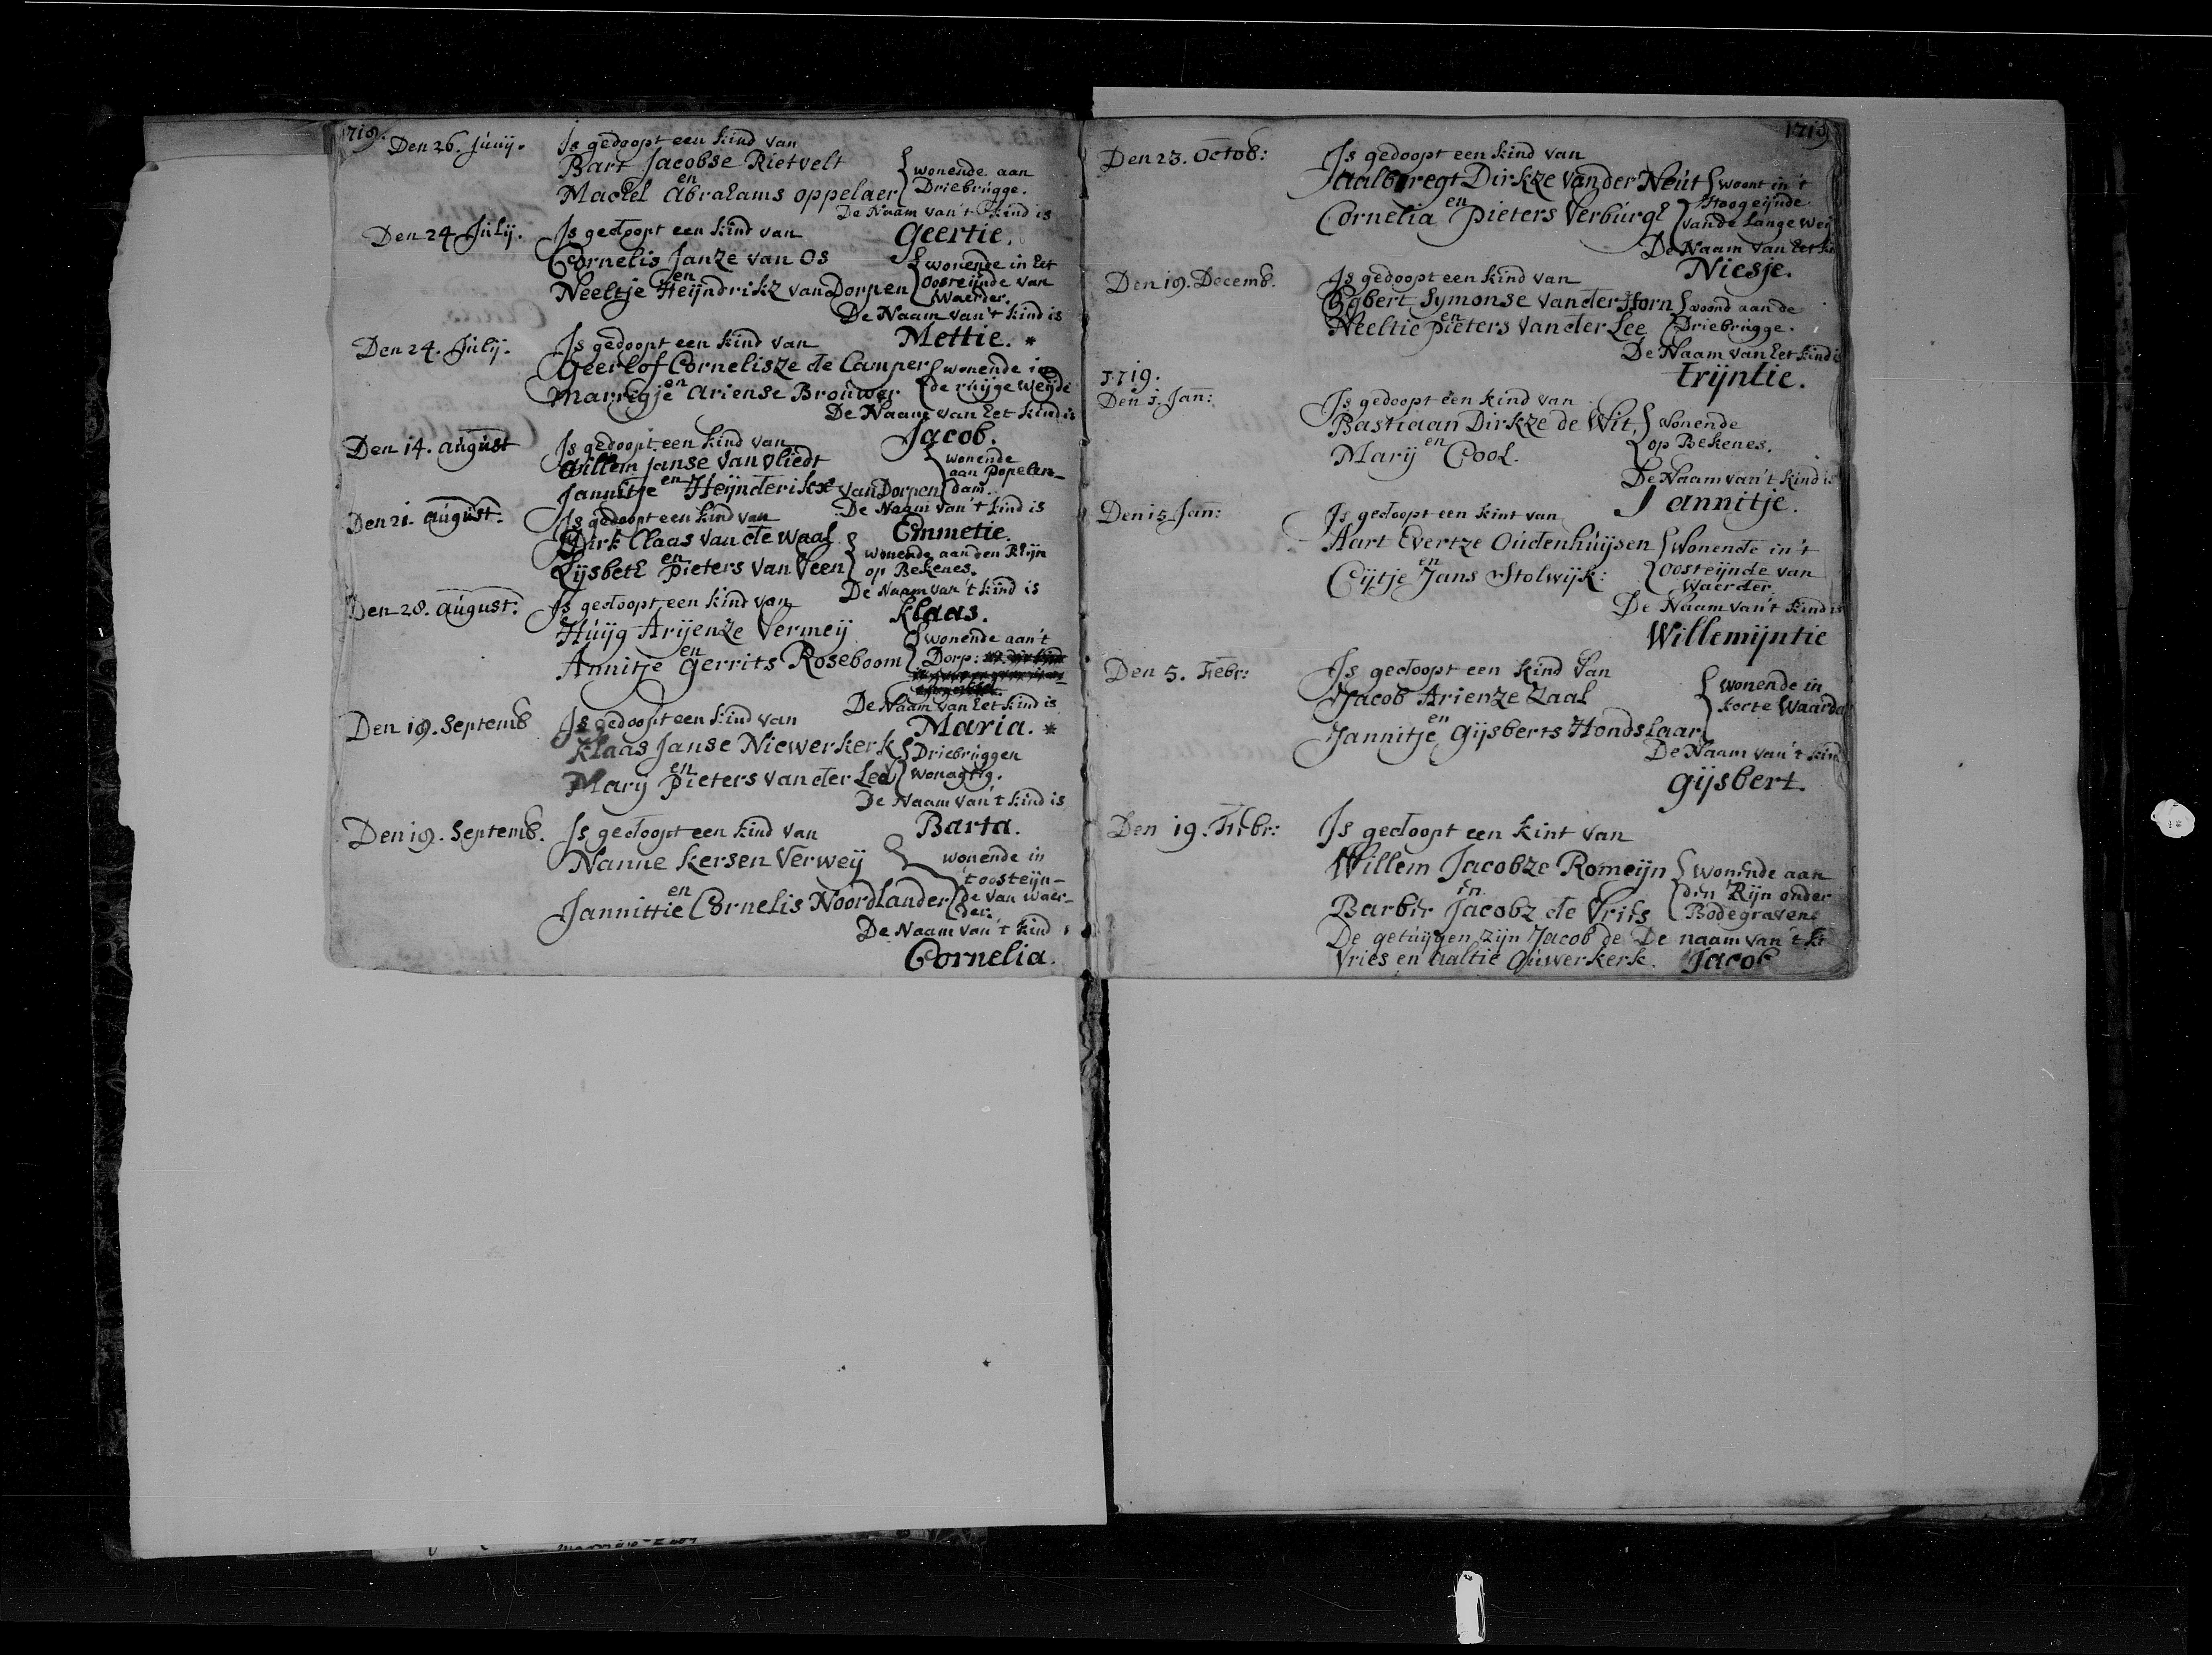 1719.
Den 26. Junij. Is gedoopt een kind van
Bart Jacobse Rietvelt { wonende aan
en
Machel Abrahams oppelaer { Driebrugge.
De Naam van't kind is
Geertie.
Den 24. Julij. Is gedoopt een kind van
Cornelis Janze van Os { wonende in het
en
Neeltje Heijndrikz van Dorpen { Oosteijnde van
Waerder.
De Naam van't kind is
Mettie. *
Den 24. Julij. Is gedoopt een kind van
Geerlof Cornelisze de Camper { wonende in
en
Marregje Ariense Brouwer { de ruijge weijde
De Naam van het kind is
Jacob.
Den 14. august Is gedoopt een kind van
Willem Janse van vliedt { wonende
aan Popelen-
en
Jannitje Heijnderikx van Dorpen { dam.
De Naam van't kind is
Emmetie.
Den 21. august. Is gedoopt een kind van
Dirk Claas van de Waal { wonende aan den Rhijn
en
Lijsbeth pieters van Veen { op Bekenes.
De Naam van't kind is
Klaas.
Den 28. august. Is gedoopt een kind van
Huijg Arijenze Vermeij { wonende aan't
en
Annitje gerrits Roseboom { Dorp:
De Naam van het kind is
Maria. *
Den 19. Septemb Is gedoopt een kind van
Klaas Janse Niewerkerk { Driebruggen
en
Marij pieters van der Lee { wonagtig.
De Naam van't kind is
Barta.
Den 19. Septemb. Is gedoopt een kind van
Nanne kersen Verweij { wonende in
't oosteijn-
en
Jannittie Cornelis Noordlander { de van waer-
der.
De Naam van't kind
Cornelia.
1719
Den 23. Octob: Is gedoopt een kind van
Aalbregt Dirkze van der Neut { woont in 't
Hoogeijnde
en
Cornelia pieters Verburgh { van de Lange Weij
De Naam van het ki
Niesje.
Den 19. Decemb. Is gedoopt een kind van
Egbert Symonse van der Horn { woond aan de
en
Neeltie pieters van der Lee { Driebrugge.
De Naam van het kind is
trijntie.
1719.
Den 1. Jan: Is gedoopt een kind van
Bastiaan Dirkze de Wit, { Wonende
en
Marij Cool. { op Bekenes.
De Naam van't kind is
Jannitje.
Den 15 Jan: Is gedoopt een kint van
Aart Evertze Oudenhuijsen { Wonende in 't
en
Cijtje Jans Stolwijk: { Oosteijnde van
Waerder.
De Naam van't kind is
Willemijntie
Den 5. Febr: Is gedoopt een kind van
Jacob Arienze Zaal { Wonende in
korte Waarder
en
Jannitje gijsberts Hondslaar
De Naam van't kind
gijsbert.
Den 19. Febr: Is gedoopt een kint van
Willem Jacobze Romeijn { Wonende aan
en
Barber Jacobz de Vries { den Rijn onder
Bodegraven.
De getuijgen zijn Jacob de De naam van't ki
Vries en Aaltie Ouwerkerk. Jacob